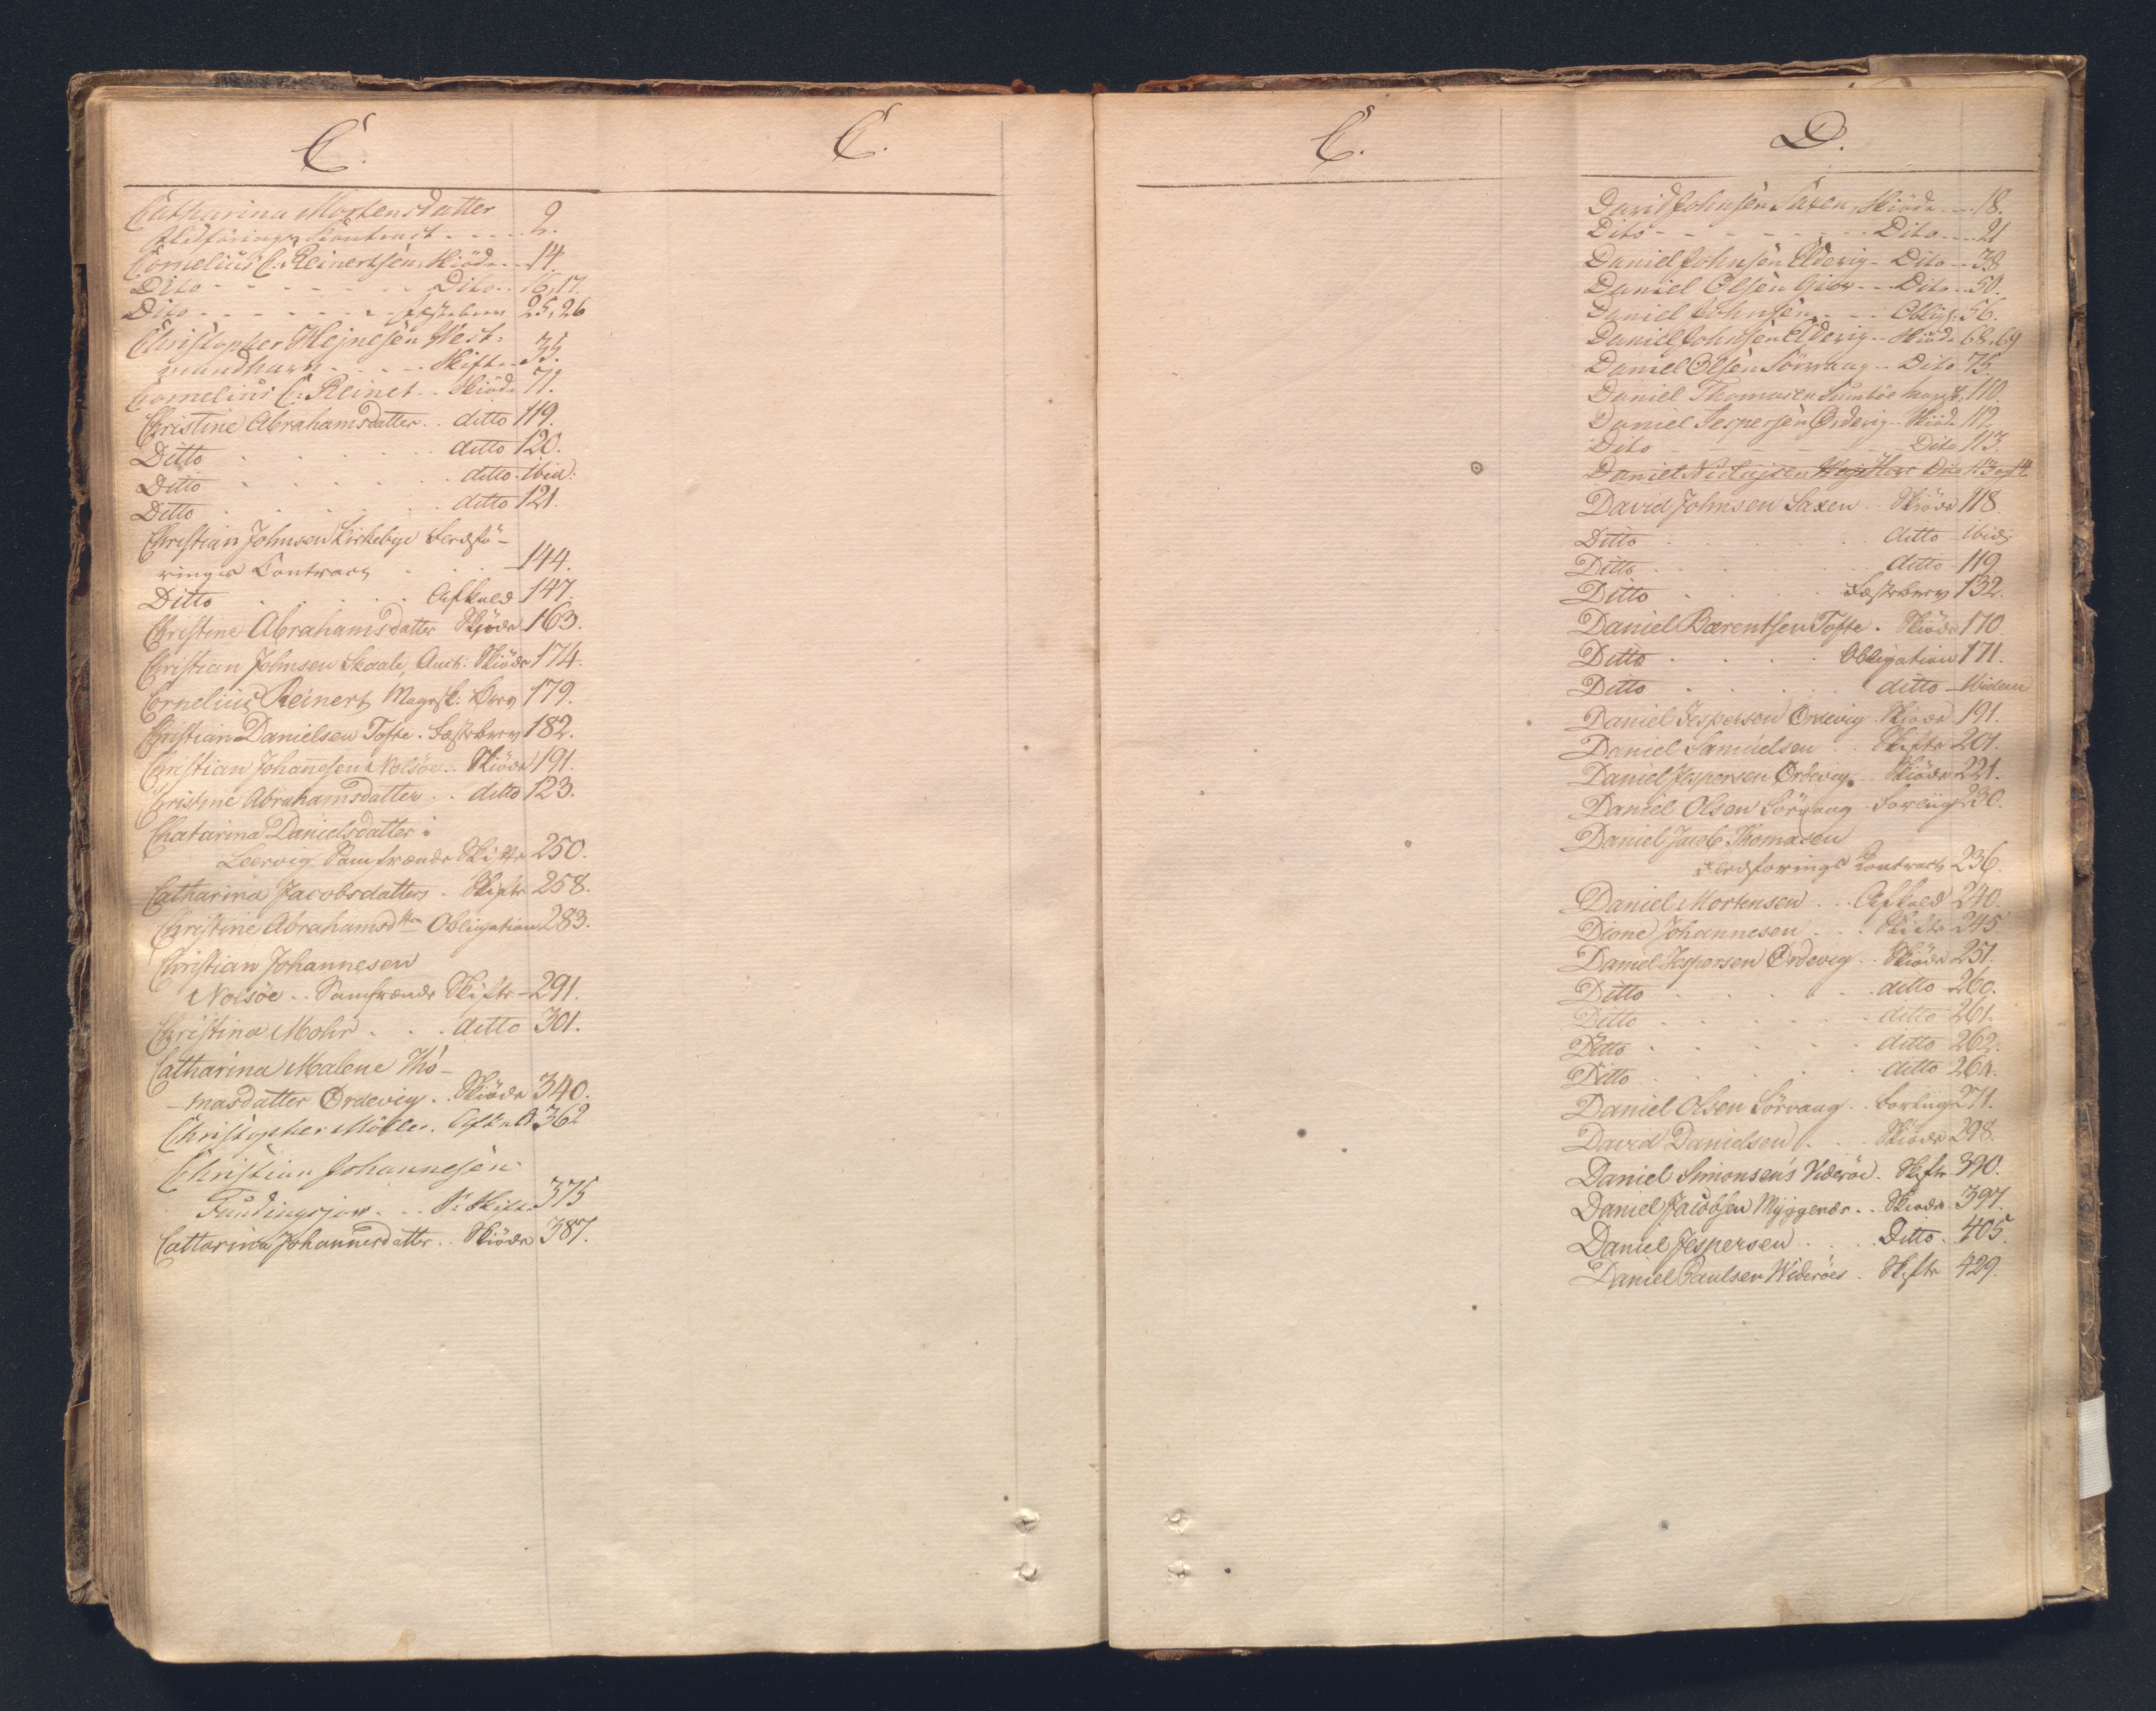 C.
Catharina Mortensdatter
Fledförings Contract - - - - 2.
Cornelius C. Reinertsen, Skiöde - - 14.
Dito - - - - - - - Dito - - 16,17.
Dito - - - - - - - Festebrev 25,26
Christopher Hejnesen Vest-
mandhavn - - - - Skifte - 35.
Cornelius C: Reinet - - Skiöde 71.
Christine Abrahamsdatter . . ditto 119.
Ditto . . . . . ditto 120.
Ditto . . . . . ditto ibid:
Ditto . . . . . ditto 121.
Christian Johnsen Kirkebye Fledfö-
rings Contract . . . 144.
Ditto . . . . . Afkald 147.
Christine Abrahamsdatter Skjöde 163.
Christian Johnsen Skaale, Auct: Skiöde 174.
Cornelius Reinert, Magesk: Brev 179.
Christian Danielsen Tofte . Fæstebrev 182.
Christian Johannesen Nolsöe . . Skiöde 191.
Christine Abrahamsdatter . . ditto 123.
Chatarina Danielsdatter i
Leervig Samfrænde Skifte 250.
Catharina Jacobsdatters . Skifte 258.
Christine Abrahamsdtter Obligation 283.
Christian Johannesen
Nolsöe . . Samfrænde Skifte - 291.
Christina Mohr . . . ditto 301.
Catharina Malene Tho-
-masdatter Ordevig . . Skiöde 340.
Christopher Möller . Afkald 362
Christian Johannesen
Fundingsjow . . . S: Skifte 375
Cattarina Johannesdatter . . Skiöde 387.
C.
C.
D.
David Johnsen Saxen, Skiöde - - - 18.
Dito - - - - - - - - Dito - - - 21
Daniel Johnsen Elderig - Dito - - 38
Daniel Olsen Giov - - - Dito - - 50.
Daniel Johnsen - - - Oblig: 56.
Daniel Johnsen Elderig - - Skiöde 68,69
Daniel Olsen Sörvaag - - Dito 75.
Daniel Thomasen Sumböe 110.
Daniel Jespersen Ordevig - - Skiöde 112.
Dito - - - - - - Dito 113.
Daniel Nielajsen Dito 113
David Johnsen Saxen . . Skiöde 118.
Ditto . . . . . ditto - ibid:
Ditto . . . . . ditto 119.
Ditto . . . . . Fæstebrev 132.
Daniel Barentsen Tofte . Skiöde 170.
Ditto . . . . . Obligation 171.
Ditto . . . . . ditto - ibidem
Daniel Jespersen Ordevig . Skjöde 191.
Daniel Samuelsen . . Skifte 201.
Daniel Jespersen Ordevig . Skiöde 221.
Daniel Olsen Sörvaag . Forliig 230.
Daniel Jacob Thomasen
Fledforings Kontract 236.
Daniel Mortensen . . . Afkald 240.
Dione Johannesen . . . Skifte 245.
Daniel Jespersen Ordevig . . Skiöde 251.
Ditto . . . . . ditto 260.
Ditto . . . . . ditto 261.
Ditto . . . . . ditto 262.
Ditto . . . . . ditto 264.
Daniel Olsen Sörvaag . . Forliig 271.
David Danielsen . . . Skiöde 298.
Daniel Simonsen's Viderøe . Skifte 390.
Daniel Jacobsen Myggenæs . . Skiöde 397.
Daniel Jespersen . . . Ditto . 405.
Daniel Paulsen Widerøes . Skifte 429.